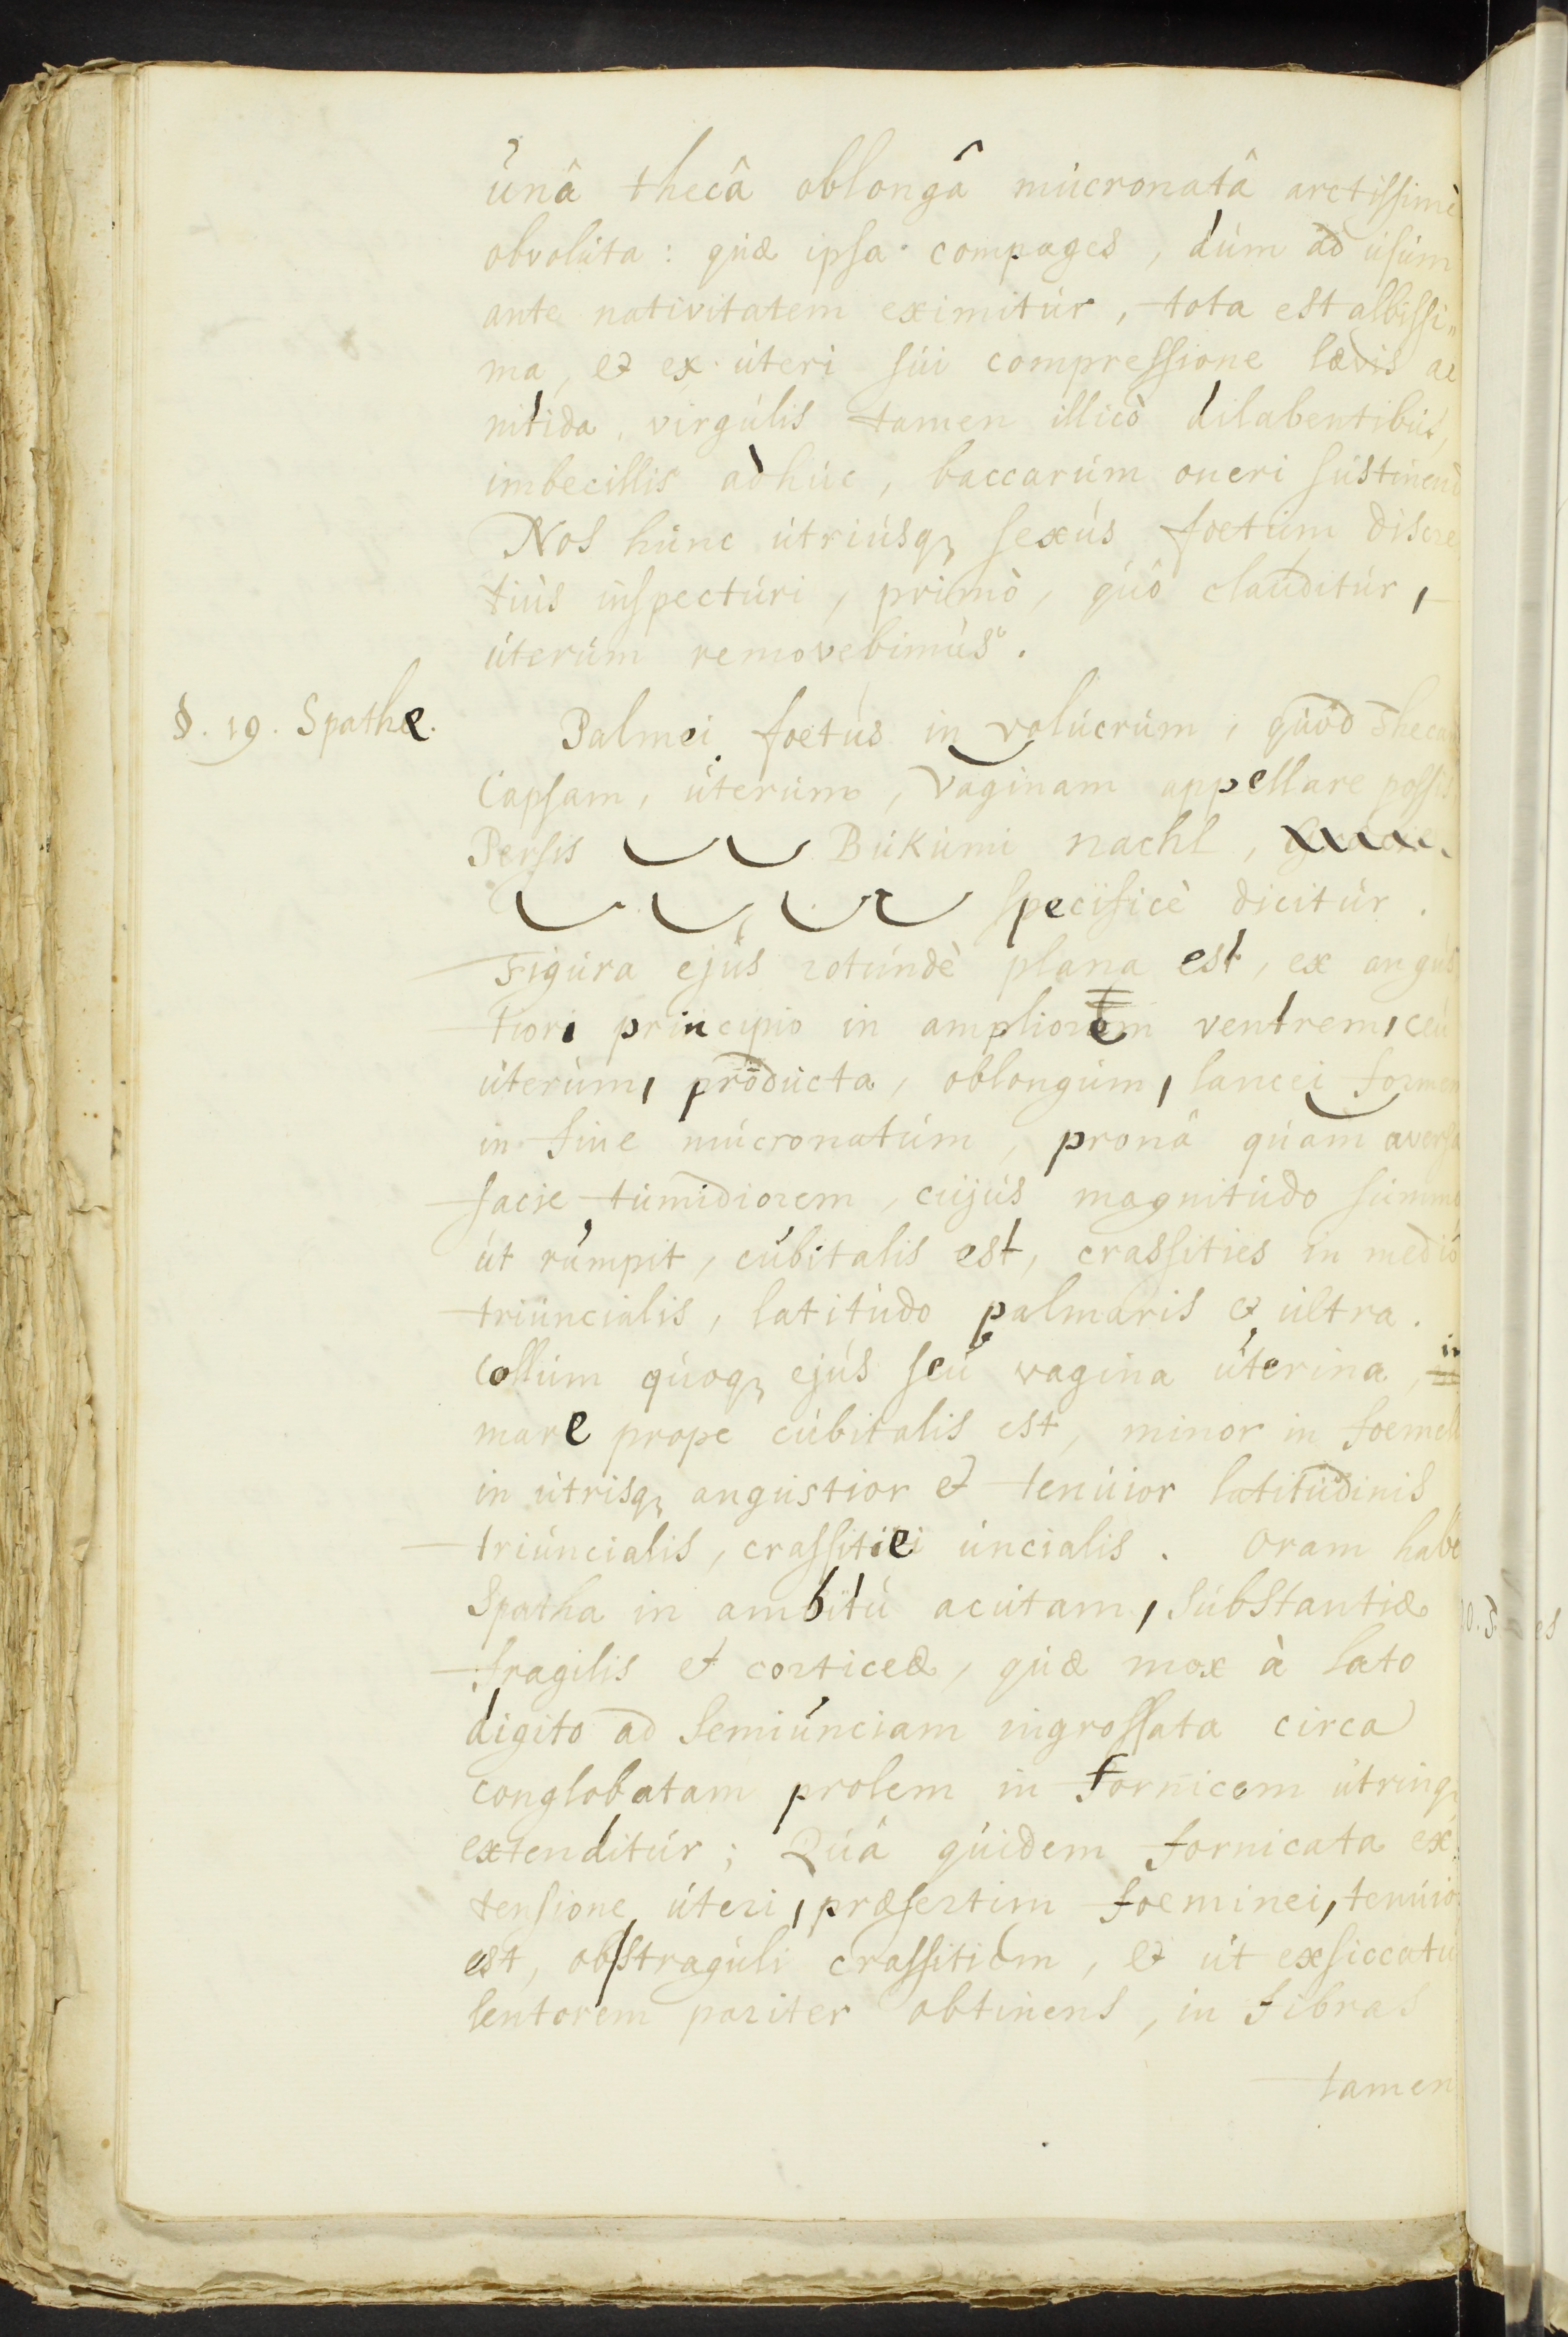 ùnâ thecâ oblongâ mùcronatâ arctissimè
obvolùta: qùæ ipsa compages, dùm ad ùsùm
ante nativitatem eximitùr, tota est albissi„
ma, & ex ùteri sùi compressione lævis ac
nitida, virgùlis tamen illicò dilabentibùs,
imbecillis adhùc, baccarùm oneri sùstinend
Nos hùnc ùtriùsq; sexùs foetùm discre
tiùs inspectùri, primò, qùô claùditùr,
ùterùm removebimùs.
§. 19. Spathe. Palmei foetùs in volùcrùm, qùod thecam
Capsam, ùterùm, vaginam appellare possis
Persis Bùkùmi nachl,
specificè dicitùr.
Figùra ejùs rotùndè plana est, ex angùs
tiori principio in ampliorem ventrem, ceù
ùterùm, prodùcta, oblongùm, lancei formem
in fine mùcronatùm, pronâ qùam aversa
facie tùmidiorem, cùjùs magnitùdo sùmma
ùt rùmpit, cùbitalis est, crassities in medio
triùncialis, latitùdo palmaris & ùltra.
Collùm qùoq; ejùs seù vagina ùterina, in
mare prope cùbitalis est, minor in foemell
in ùtrisq; angùstior & tenùior latitùdinis
triùncialis, crassitiei ùncialis. Oram habe
Spatha in ambitù acùtam, sùbstantiæ
fragilis & corticeæ, qùæ mox à lato
digito ad semiùnciam ingrossata circa
conglobatam prolem in fornicem ùtrinq;
extenditùr; Qùâ qùidem fornicata ex„
tensione ùteri, præsertim foeminei, tenùior
est, obstragùli crassitiem, & ùt exsiccatù
lentorem pariter obtinens, in fibras
tamen